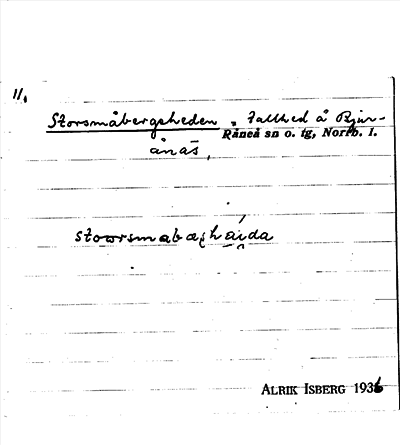 11.
Storsmåbergsheden, Tallhed å Bjur-
Råneå sn o. tg, Norrb. l.
ånäs,
stoorsmabæjhäida
ALRIK ISBERG 1936